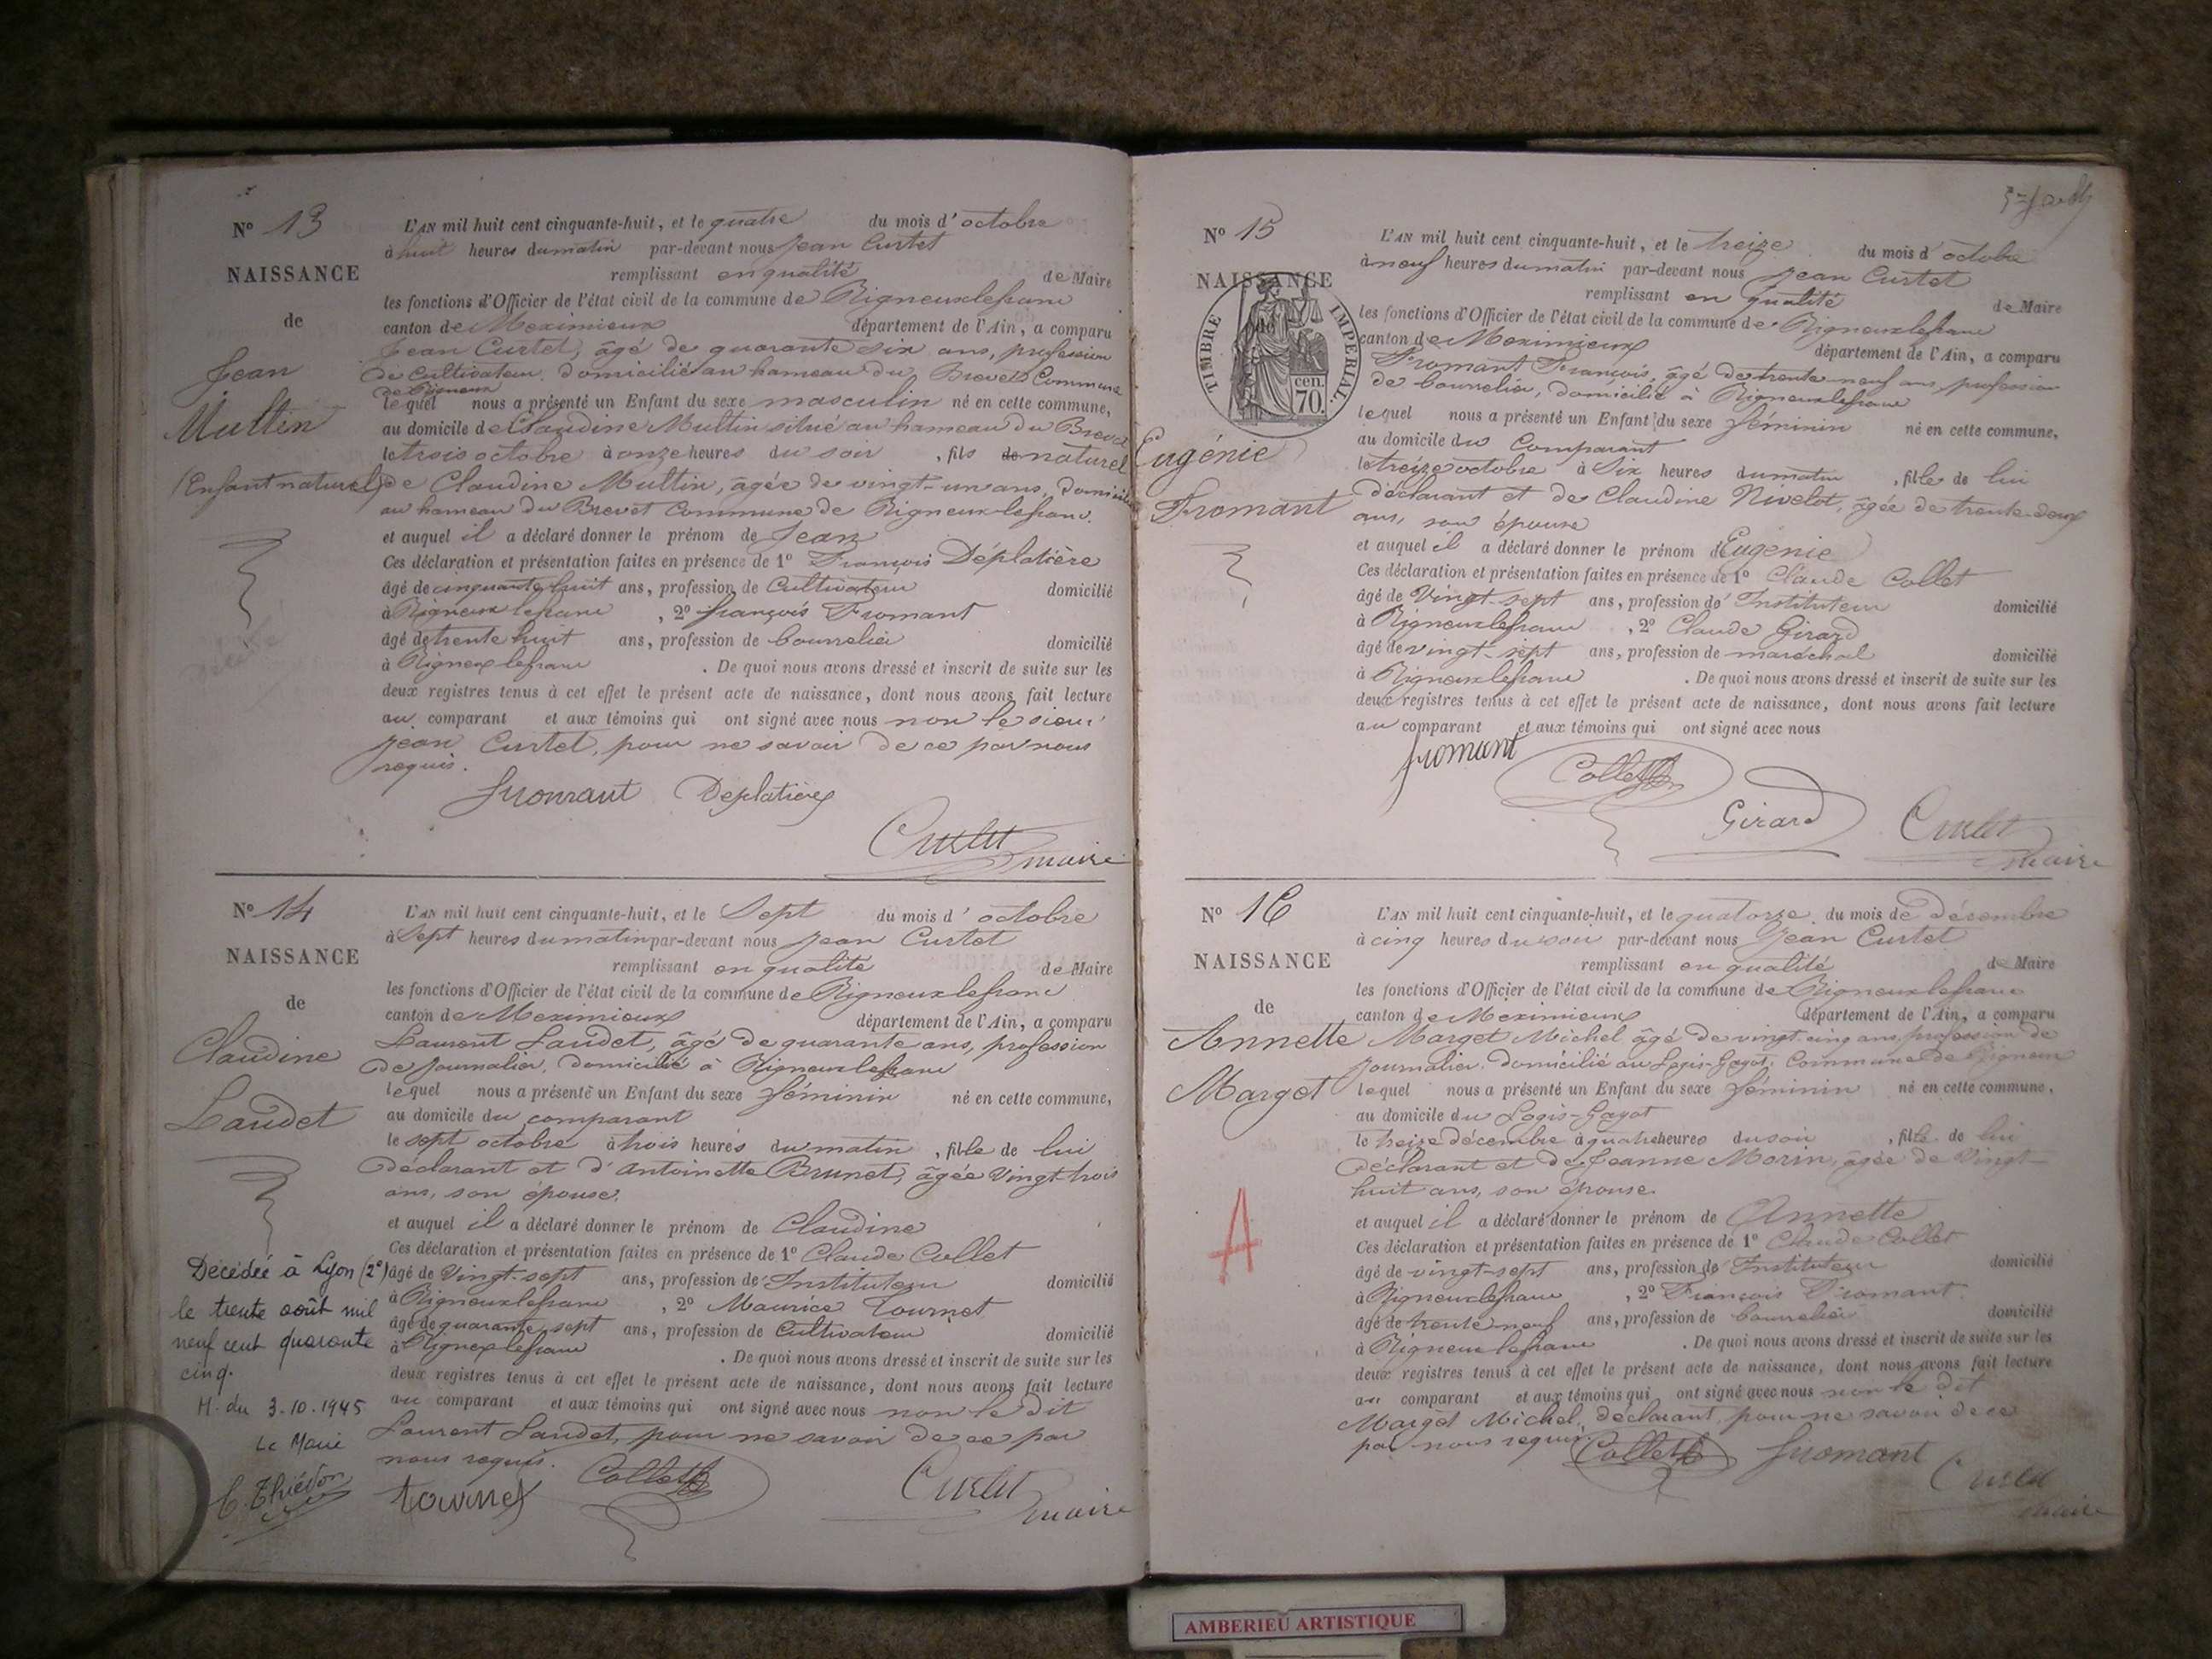 N° 13
NAISSANCE
de
Jean
Multin
(Enfant naturel)
L'AN mil huit cent cinquante-huit, et le quatre du mois d'octobre
à huit heures du matin par-devant nous Jean Curtet
remplissant en qualité de Maire
les fonctions d'Officier de l'état civil de la commune de Rigneuxlefranc
canton de Meximieux département de l'Ain, a comparu
Jean Curtet, âgé de quarante six ans, profession
de Cultivateur, domicilié au hameau du Brevet Commune
de Rigneux
lequel nous a présenté un Enfant du sexe masculin né en cette commune,
au domicile de Claudine Multin situé au hameau du Brevet
le trois octobre à onze heures du soir, fils de naturel
de Claudine Multin, âgée de vingt-un ans, domiciliée
au hameau du Brevet Commune de Rigneux-lefranc.
et auquel il a déclaré donner le prénom de Jean
Ces déclaration et présentation faites en présence de 1° François Déplatière
âgé de cinquante huit ans, profession de Cultivateur domicilié
à Rigneux lefranc, 2° françois Fromant
âgé de trente huit ans, profession de bourrelier domicilié
à Rigneux lefranc. De quoi nous avons dressé et inscrit de suite sur les
deux registres tenus à cet effet le présent acte de naissance, dont nous avons fait lecture
au comparant et aux témoins qui ont signé avec nous non le sieur
Jean Curtet, pour ne savoir de ce par nous
requis.
fromant Deplatière
Curtet
maire
N° 14
NAISSANCE
de
Claudine
Laudet
L'AN mil huit cent cinquante-huit, et le Sept du mois d'octobre
à Sept heures du matin par-devant nous Jean Curtet
remplissant en qualité de Maire
les fonctions d'Officier de l'état civil de la commune de Rigneuxlefranc
canton de Meximieux département de l'Ain, a comparu
Laurent Laudet, âgé de quarante ans, profession
de Journalier, domicilié à Rigneuxlefranc
lequel nous a présenté un Enfant du sexe féminin né en cette commune,
au domicile du comparant
le sept octobre à trois heures du matin, fille de lui
déclarant et d'Antoinette Brunet, âgée Vingt-trois
ans, son épouse.
et auquel il a déclaré donner le prénom de Claudine
Ces déclaration et présentation faites en présence de 1° Claude Collet
âgé de Vingt-sept ans, profession de Instituteur domicilié
à Rigneuxlefranc, 2° Maurice Tournet
âgé de quarante sept ans, profession de Cultivateur domicilié
à Rigneuxlefranc. De quoi nous avons dressé et inscrit de suite sur les
deux registres tenus à cet effet le présent acte de naissance, dont nous avons fait lecture
au comparant et aux témoins qui ont signé avec nous non le dit
Laurent Laudet, pour ne savoir de ce par
nous requis.
tournet Collet Curtet
maire
Décédée à Lyon (2e)
le trente août mil
neuf cent quarante
cinq.
M. du 3.10.1945
Le Maire
N° 15
NAISSANCE
de
TIMBRE IMPERIAL.
cen.
70.
Eugénie
Fromant
L'AN mil huit cent cinquante-huit, et le treize du mois d'octobre
à neuf heures du matin par-devant nous Jean Curtet
remplissant en qualité de Maire
les fonctions d'Officier de l'état civil de la commune de Rigneuxlefranc
canton de Meximieux département de l'Ain, a comparu
Fromant François, âgé de trente-neuf ans, profession
de bourrelier, domicilié à Rigneuxlefranc
lequel nous a présenté un Enfant du sexe féminin né en cette commune,
au domicile du Comparant
le treize octobre à Six heures du matin, fille de lui
déclarant et de Claudine Nivelot, âgée de trente-deux
ans, son épouse
et auquel il a déclaré donner le prénom d'Eugénie
Ces déclaration et présentation faites en présence de 1° Claude Collet
âgé de Vingt-sept ans, profession de Instituteur domicilié
à Rigneuxlefranc, 2° Claude Girard
âgé de vingt-sept ans, profession de maréchal domicilié
à Rigneuxlefranc. De quoi nous avons dressé et inscrit de suite sur les
deux registres tenus à cet effet le présent acte de naissance, dont nous avons fait lecture
au comparant et aux témoins qui ont signé avec nous
fromant Collet
Girard Curtet
maire
N° 16
NAISSANCE
de
Annette
Margot
A
L'AN mil huit cent cinquante-huit, et le quatorze du mois de Décembre
à cinq heures du soir par-devant nous Jean Curtet
remplissant en qualité de Maire
les fonctions d'Officier de l'état civil de la commune de Rigneuxlefranc
canton de Meximieux département de l'Ain, a comparu
Margot Michel âgé de vingt-cinq ans, profession de
Journalier, domicilié au Logis-Gayot, Commune de Rigneux
lequel nous a présenté un Enfant du sexe féminin né en cette commune,
au domicile du Logis-Gayot
le treize décembre à quatre heures du soir, fille de lui
Déclarant et de Jeanne Morin, âgée de Vingt-
huit ans, son épouse.
et auquel il a déclaré donner le prénom de Annette
Ces déclaration et présentation faites en présence de 1° Claude Collet
âgé de vingt-sept ans, profession de Instituteur domicilié
à Rigneuxlefranc, 2° François Fromant
âgé de trente neuf ans, profession de bourrelier domicilié
à Rigneuxlefranc. De quoi nous avons dressé et inscrit de suite sur les
deux registres tenus à cet effet le présent acte de naissance, dont nous avons fait lecture
au comparant et aux témoins qui ont signé avec nous non le dit
Margot Michel, déclarant, pour ne savoir de ce
par nous requis. Collet fromant Curtet
maire
AMBERIEU ARTISTIQUE